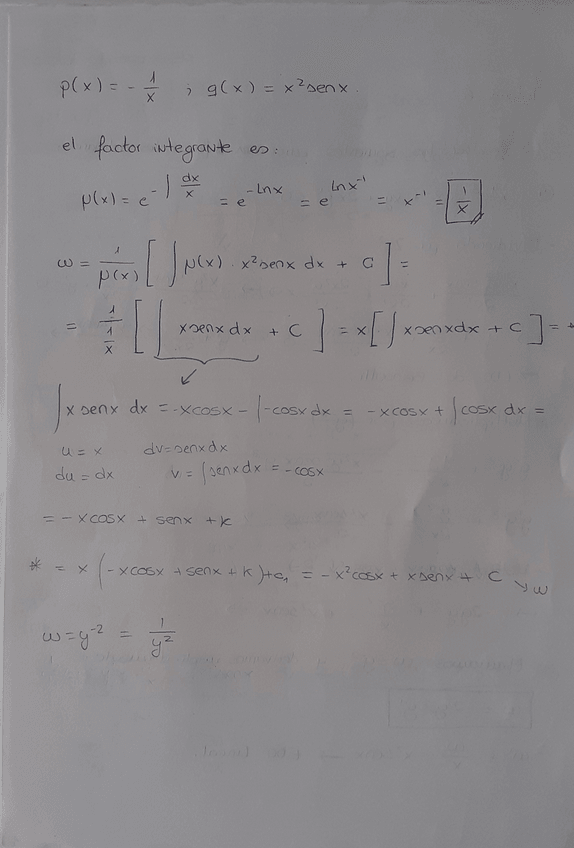 p(x) = - 1/x ; g(x) = x² sen x.
el factor integrante es:
μ(x) = e^(-∫ dx/x) = e^(-Ln x) = e^(Ln x⁻¹) = x⁻¹ = 1/x
ω = 1/μ(x) [ ∫ μ(x) · x² sen x dx + C ] =
= 1/(1/x) [ ∫ x sen x dx + C ] = x [ ∫ x sen x dx + C ] = *
∫ x sen x dx = -x cos x - ∫ -cos x dx = -x cos x + ∫ cos x dx =
u = x dv = sen x dx
du = dx v = ∫ sen x dx = -cos x
= -x cos x + sen x + k
* = x ( -x cos x + sen x + k ) + c₁ = -x² cos x + x sen x + C ↘ ω
ω = y⁻² = 1/y²